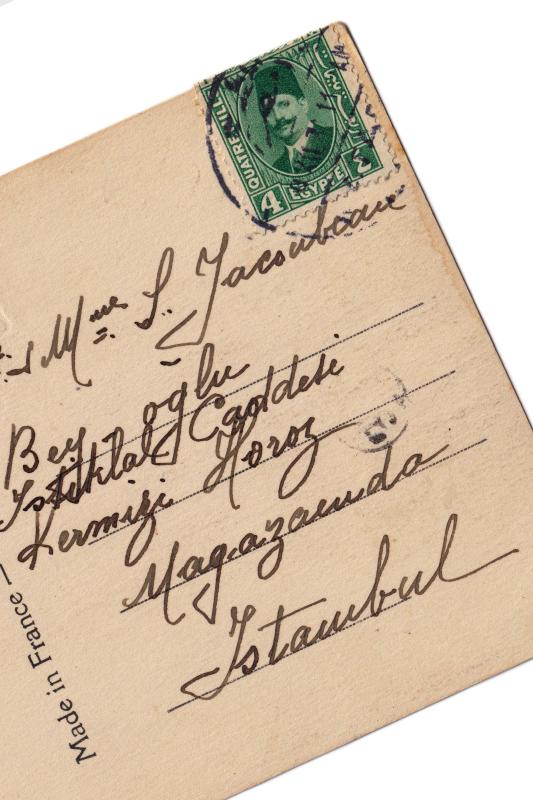 QUATRE MILL
4 EGYPTE ٤
Mme S. Jacoubeau
Bey oğlu
Istiklal Caddesi
Kermizi Horoz
Magazasında
Istambul
Made in France